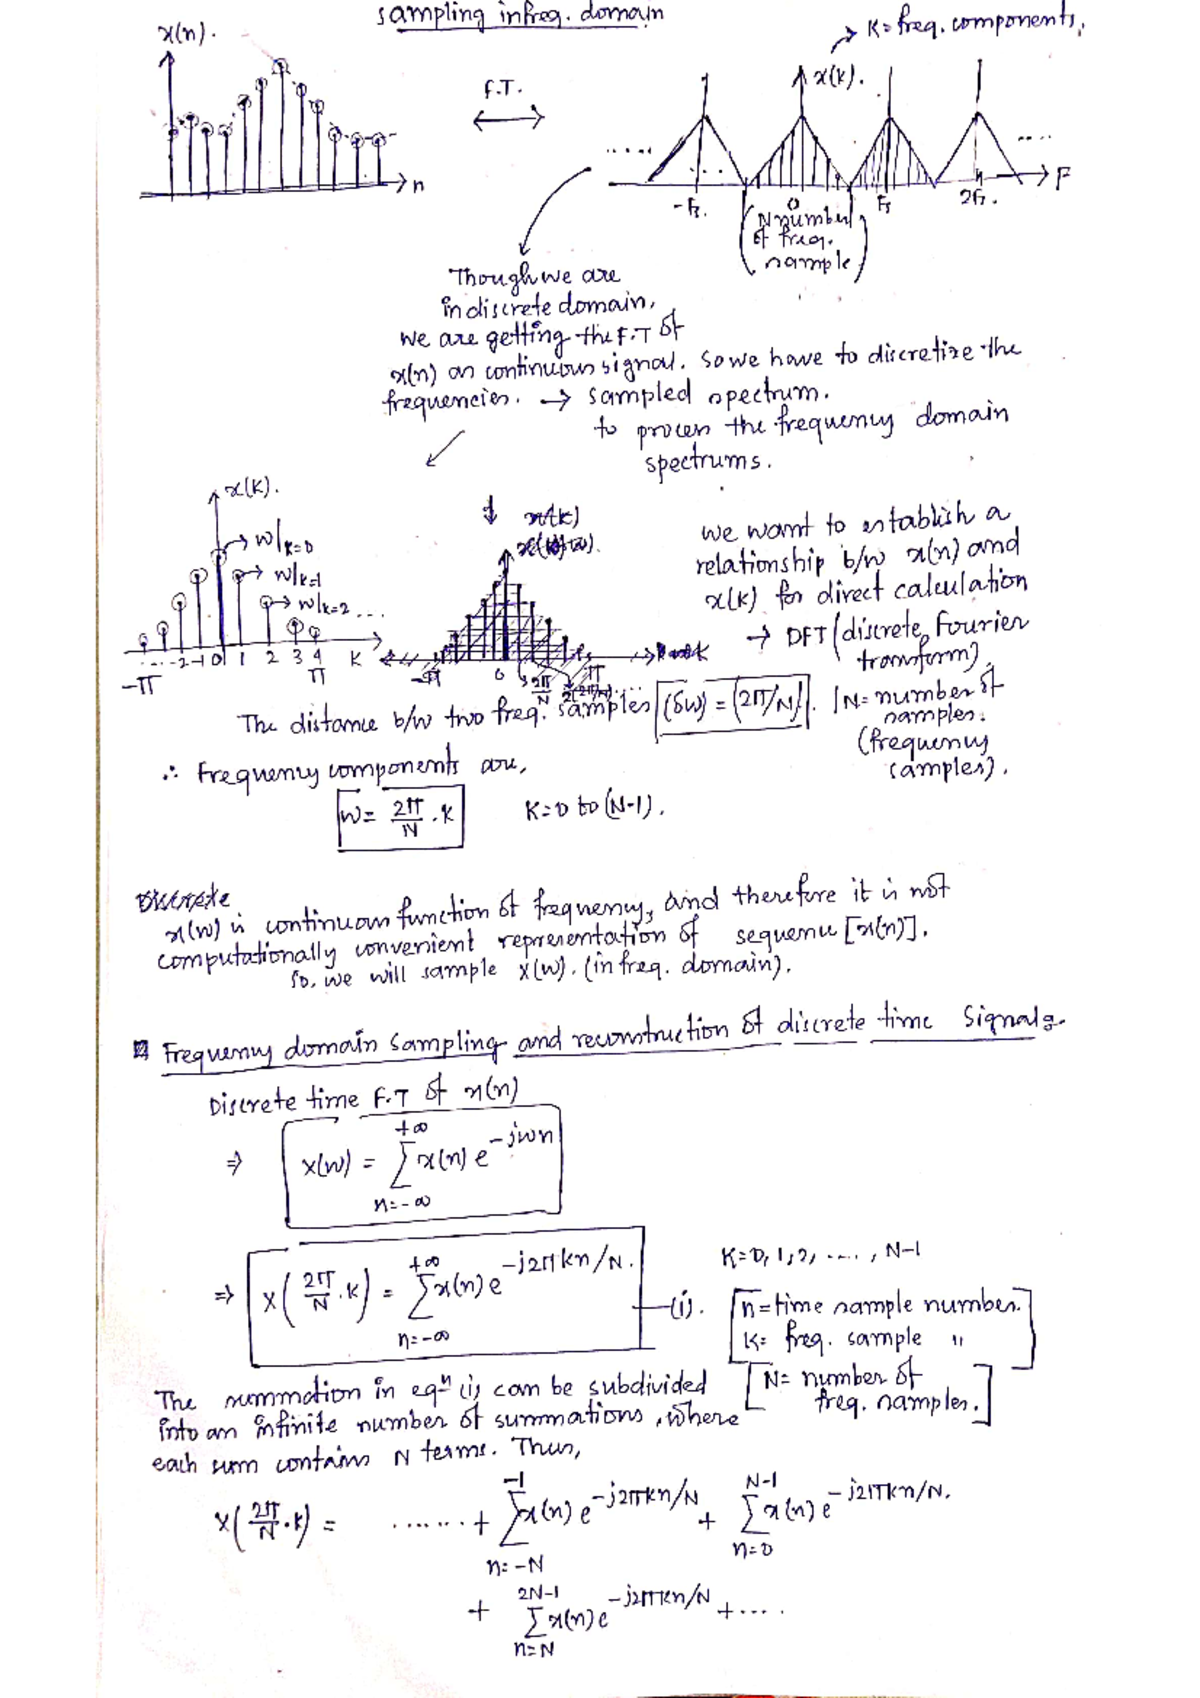 sampling in freq. domain
x(n).
F.T.
K = freq. components.
x(k).
n
.....
....
F
-Fs.
0
Fs
2Fs.
(N number
of freq.
sample)
Though we are
in discrete domain,
we are getting the F.T of
x(n) as continuous signal. So we have to discretize the
frequencies. → sampled spectrum.
to process the frequency domain
spectrums.
x(k).
w|k=0
w|k=1
w|k=2 ....
-2 -1 0 1 2 3 4 K
-π
π
-π 0 2π/N 2(2π/N) π
we want to establish a
relationship b/w x(n) and
x(k) for direct calculation
→ DFT (discrete Fourier
transform).
The distance b/w two freq. samples (δw) = (2π/N). | N = number of
samples.
(frequency
samples).
∴ Frequency components are,
w = 2π/N . K    K = 0 to (N-1).
x(w) is continuous function of frequency, and therefore it is not
computationally convenient representation of sequence [x(n)].
So, we will sample x(w). (in freq. domain).
Frequency domain sampling and reconstruction of discrete time signals.
Discrete time F.T of x(n)
⇒ X(w) = Σ_{n=-∞}^{+∞} x(n) e^{-jwn}
⇒ X(2π/N . K) = Σ_{n=-∞}^{+∞} x(n) e^{-j2πkn/N}. —(i).
K = 0, 1, 2, ...., N-1
[n = time sample number.
K = freq. sample "]
[N = number of
freq. samples.]
The summation in eqn (i) can be subdivided
into an infinite number of summations, where
each sum contains N terms. Thus,
X(2π/N . K) = ....... + Σ_{n=-N}^{-1} x(n) e^{-j2πkn/N} + Σ_{n=0}^{N-1} x(n) e^{-j2πkn/N}.
+ Σ_{n=N}^{2N-1} x(n) e^{-j2πkn/N} + ....